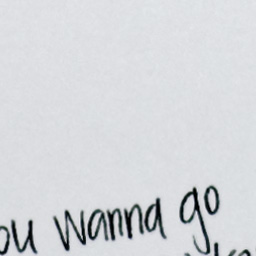 ou wanna go